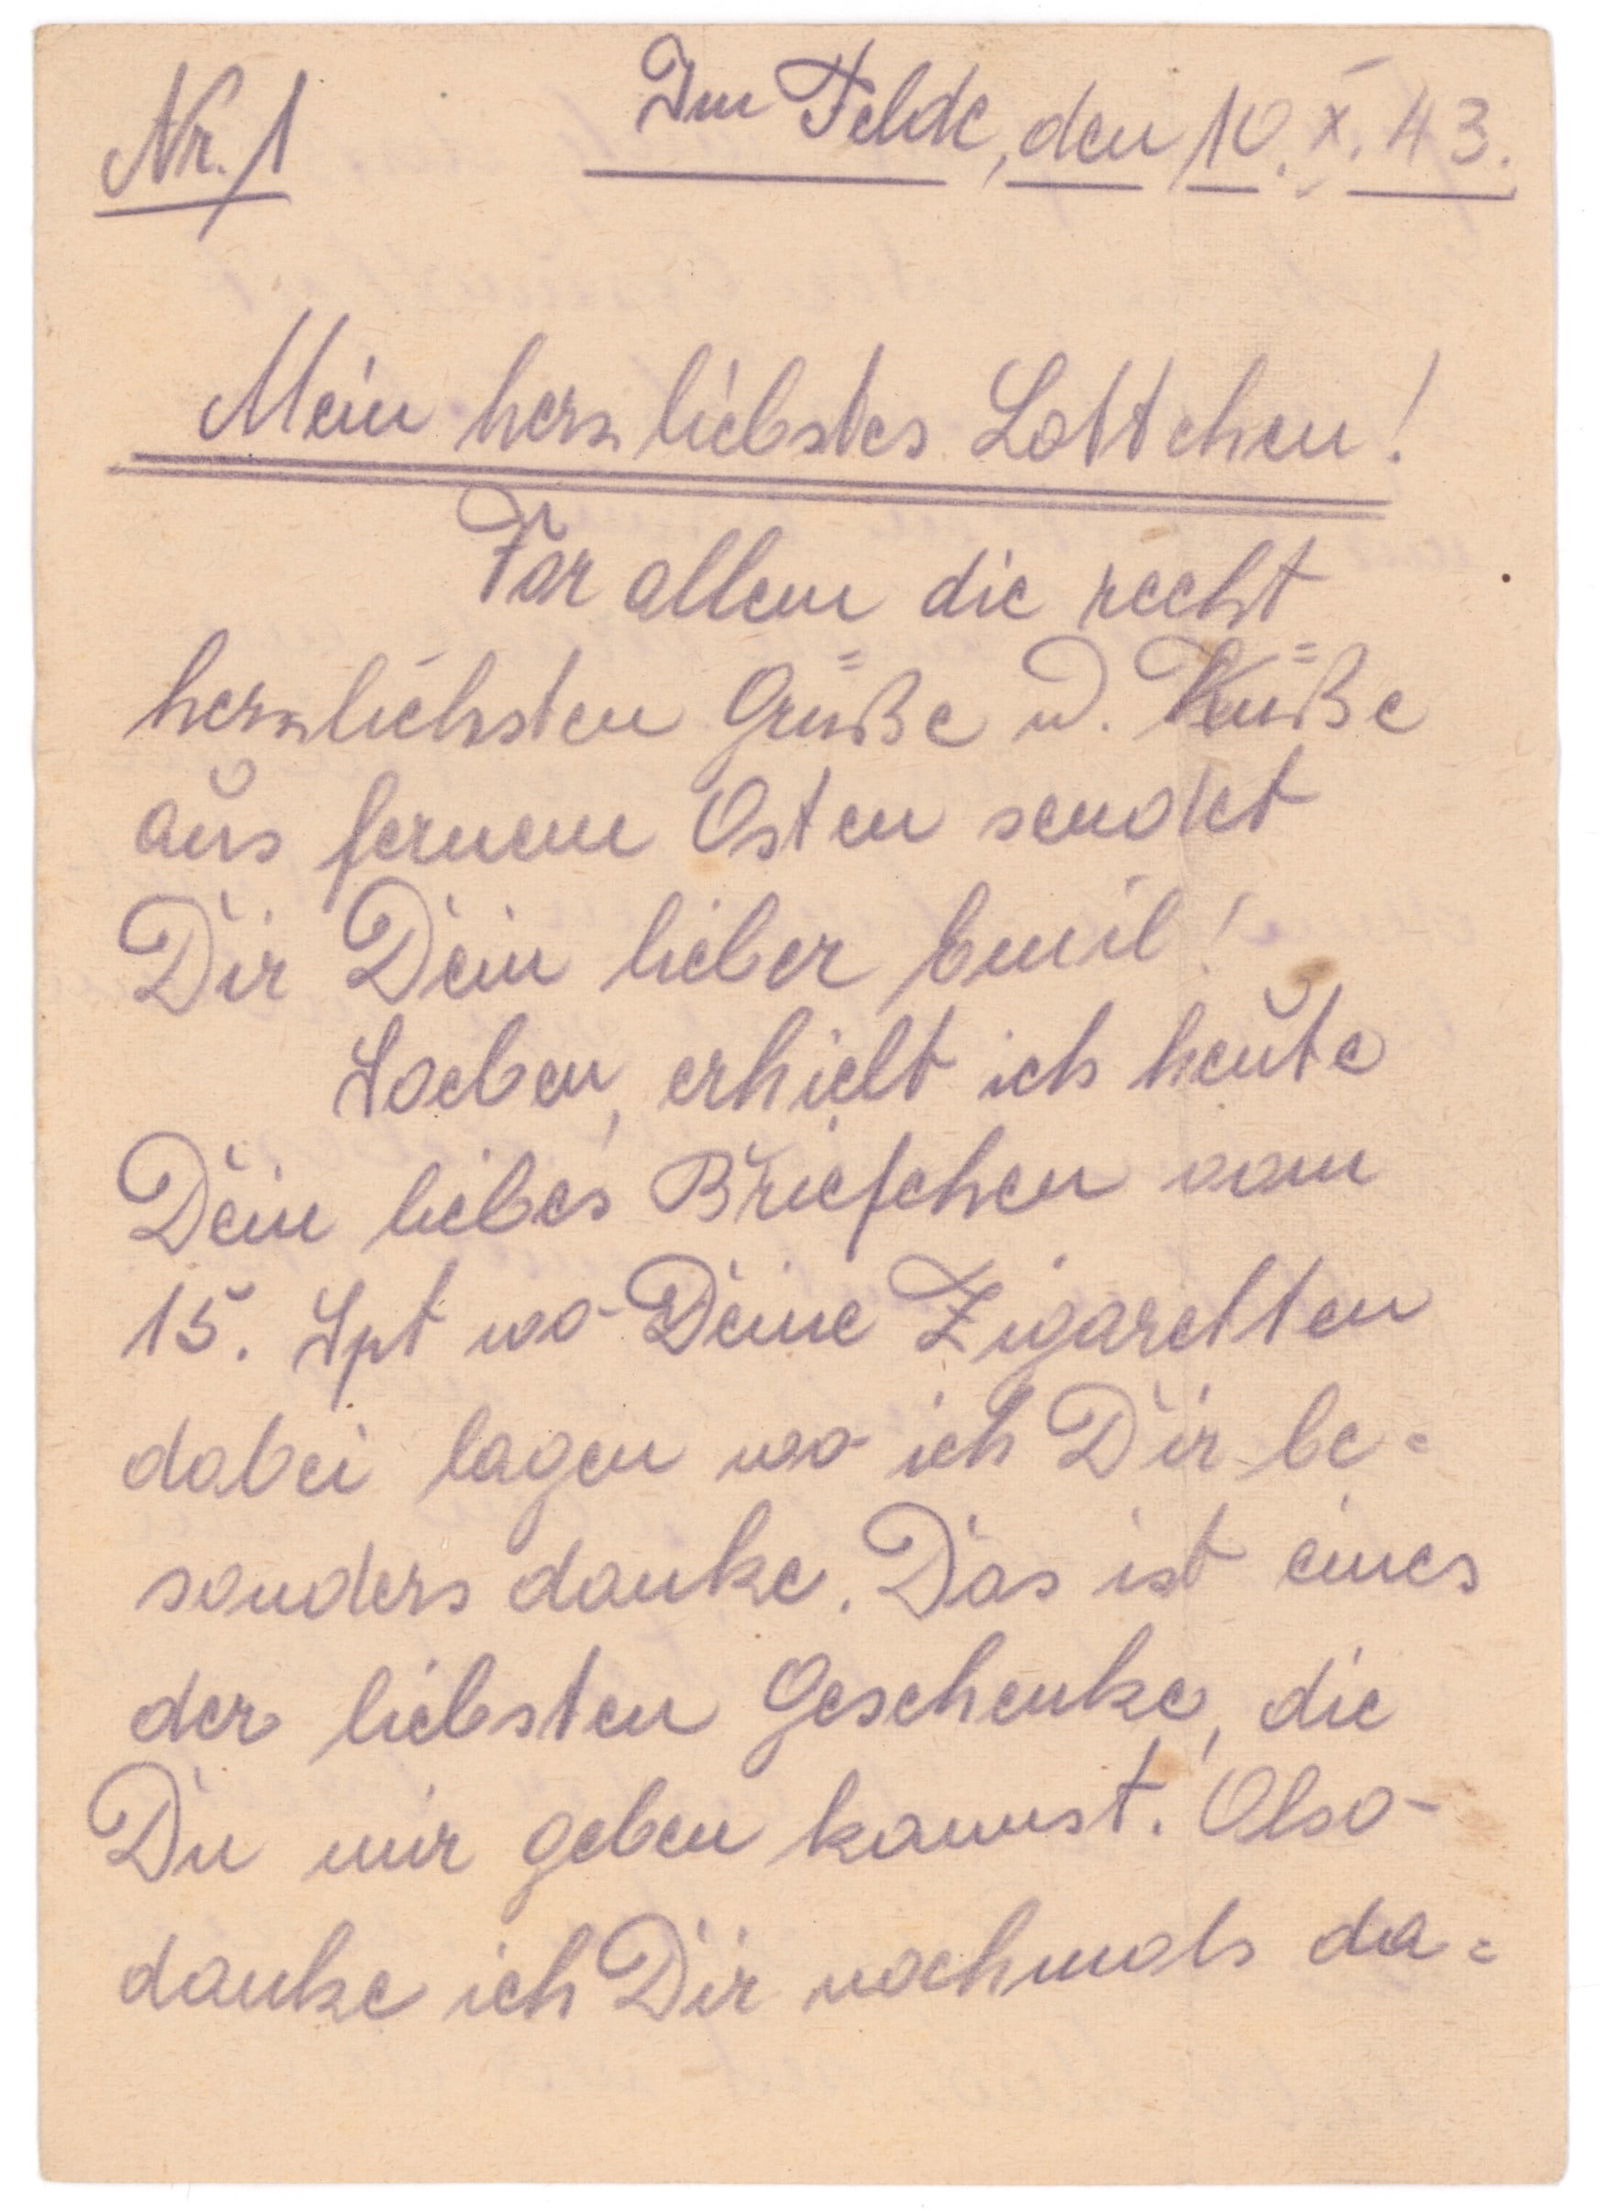 Nr. 1
Im Felde, den 10. X. 43.
Mein herzliebstes Lottchen!
For allem die recht
herzlichsten Grüße u. Küße
aus fernem Osten sendet
Dir Dein lieber Emil!
Soeben, erhielt ich heute
Dein liebes Briefchen vom
15. Spt wo Deine Zigaretten
dabei lagen wo ich Dir be=
sonders danke. Das ist eines
der liebsten Geschenke, die
Du mir geben kannst. Also
danke ich Dir nochmals da=